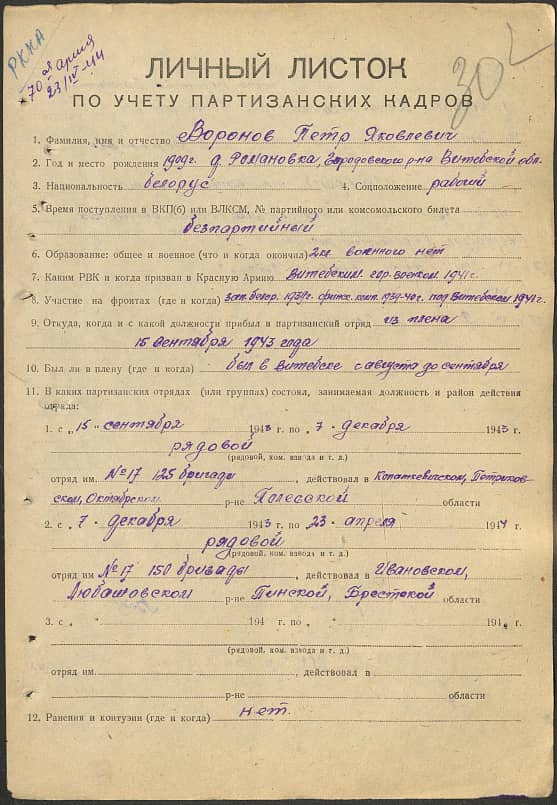 РККА
70 ая армия
23/IV-44
302
ЛИЧНЫЙ ЛИСТОК
ПО УЧЕТУ ПАРТИЗАНСКИХ КАДРОВ
1. Фамилия, имя и отчество Воронов Петр Яковлевич
2. Год и место рождения 1909г. д. Романовка, Городовского р-на Витебской обл.
3. Национальность белорус 4. Соцположение рабочий
5. Время поступления в ВКП(б) или ВЛКСМ, № партийного или комсомольского билета
безпартийный
6. Образование: общее и военное (что и когда окончил) 2кл военного нет
7. Каким РВК и когда призван в Красную Армию Витебским гор. воском. 1941г.
8. Участие на фронтах (где и когда) зап. белор. 1939г. финск. комп. 1939-40г. под Витебском 1941г.
9. Откуда, когда и с какой должности прибыл в партизанский отряд из плена
15 сентября 1943 года
10. Был ли в плену (где и когда) был в Витебске с августа до сентября
11. В каких партизанских отрядах (или группах) состоял, занимаемая должность и район действия
отряда:
1. с „15„ сентября 1943 г. по „7„ декабря 1943 г.
рядовой
(рядовой, ком. взвода и т. д.)
отряд им. №17 125 бригады, действовал в Копаткевичском, Петриков-
ском, Октябрьском р-не Полесской области
2. с „7„ декабря 1943 г. по „23„ апреля 1944 г.
рядовой
(рядовой, ком. взвода и т. д.)
отряд им №17 150 бригады, действовал в Ивановском,
Любашовском р-не Пинской, Брестской области
3. с „ „ 194 г. по „ „ 194 г.
(рядовой, ком. взвода и т. д.)
отряд им. , действовал в
р-не области
12. Ранения и контузии (где и когда) нет.